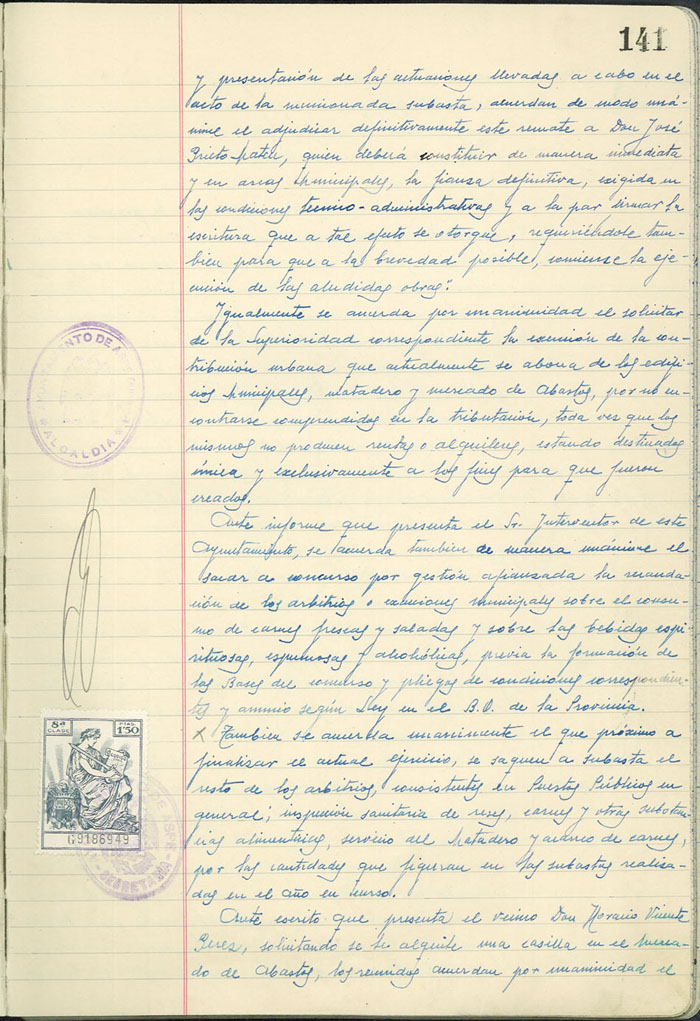 141
y presentación de las actuaciones llevadas a cabo en el
acto de la mencionada subasta, acuerdan de modo uná-
nime el adjudicar definitivamente este remate a Don José
Prieto Mateu, quien deberá constituir de manera inmediata
y en arcas Municipales, la fianza definitiva, exigida en
las condiciones tecnico-administrativas y a la par firmar la
escritura que a tal efecto se otorgue, requiriéndole tam-
bien para que a la brevedad posible, comience la eje-
cución de las aludidas obras".
Igualmente se acuerda por unanimidad el solicitar
de la Superioridad correspondiente la exención de la con-
tribución urbana que actualmente se abona de los edifi-
cios Municipales, matadero y mercado de Abastos, por no en-
contrarse comprendidos en la tributación, toda vez que los
mismos no producen rentas o alquileres, estando destinados
única y exclusivamente a los fines para que fueron
creados.
Ante informe que presenta el Sr. Interventor de este
Ayuntamiento, se acuerda tambien de manera unánime el
sacar a concurso por gestión afianzada la recauda-
ción de los arbitrios o exacciones municipales sobre el consu-
mo de carnes frescas y saladas y sobre las bebidas espi-
rituosas, espumosas y alcohólicas, previa la formación de
las Bases del concurso y pliegos de condiciones correspondien-
tes y anuncio según Ley en el B.O. de la Provincia.
Tambien se acuerda unanimemente el que próximo a
finalizar el actual ejercicio, se saquen a subasta el
resto de los arbitrios, consistentes en Puestos Públicos en
general; inspección sanitaria de reses, carnes y otras substan-
cias alimenticias, servicio del Matadero y acarreo de carnes,
por las cantidades que figuran en las subastas realiza-
das en el año en curso.
Ante escrito que presenta el vecino Don Horacio Vicente
Perez, solicitando se le alquile una casilla en el Merca-
do de Abastos, los reunidos acuerdan por unanimidad el
AYUNTAMIENTO DE
ALCALDIA
8ª CLASE
PTAS. 1'50
G9186949
SECRETARIA